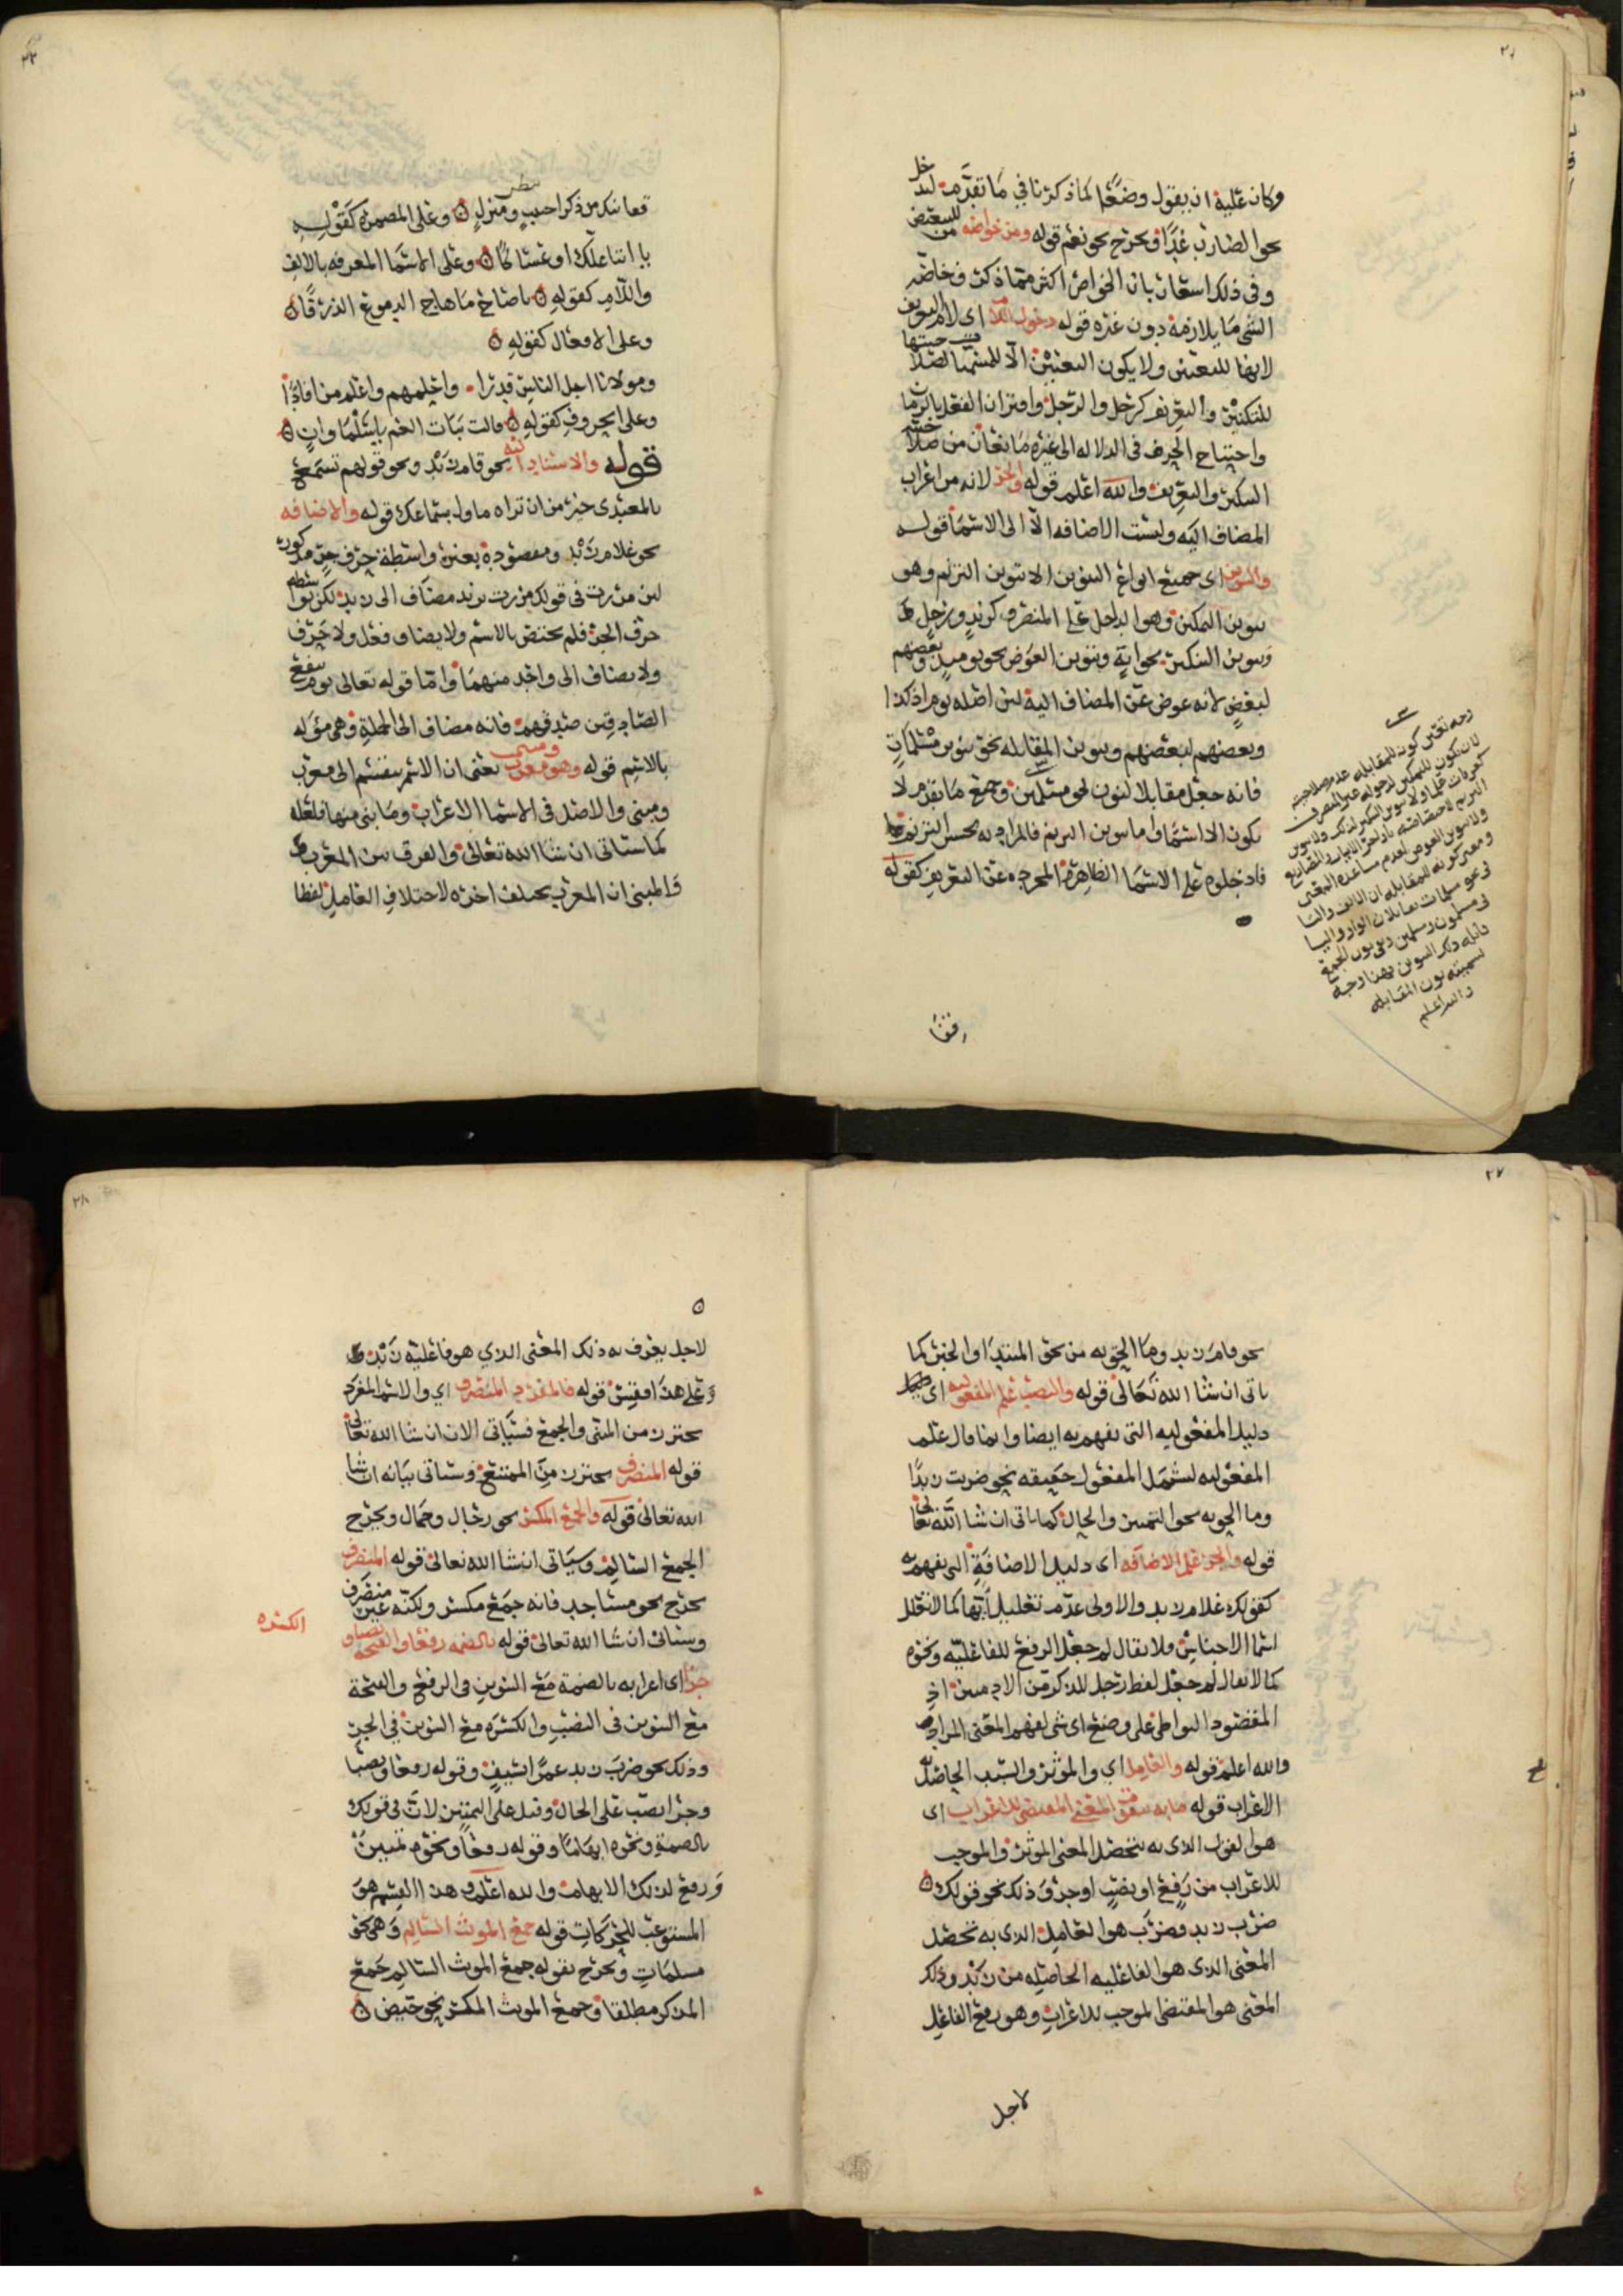 وكان عليه ان يقول وضعًا كما ذكرنا في ما تقدم ليدخل
نحو الضارب غدًا ويخرج نحو نعم قوله ومن خواصه من للتبعيض
وفي ذلك اشعار بان الخواص اكثر مما ذكر وخاصه
الشي ما يلازمه دون غيره قوله دخول اللام اى لام التعريف
لانها للتعيين ولا يكون التعيين الا للمسميا لصلاحيتها
للتنكير والتعريف كرجل والرجل واقتران الفعل بالزمان
واحتياج الحرف في الدلاله الى غيره مانعان من صلاحيته
التنكير والتعريف والله اعلم قوله والجر لانه من اعراب
المضاف اليه وليست الاضافه الا الى الاسما قوله
والتنوين اى جميع انواع التنوين الا تنوين الترنم وهو
تنوين التمكين وهو الداخل على المنصرف كزيدٍ ورجلٍ
وتنوين التنكير نحو ايهٍ وتنوين العوض نحو يوميذٍ وبعضهم
لبعضٍ لانه عوض عن المضاف اليه لان اصله يوم اذ كذا
وبعضهم لبعضهم وتنوين المقابله نحو تنوين مسلماتٍ
فانه جعل مقابلا لنون نحو مسلمين وجميع ما تقدم لا
يكون الا اسمًا واما تنوين الترنم فالمراد به تحسين الترنم
فادخلوه على الاسما الظاهرة المجرده عن التعريف كقوله
قفا
رحمه
لان يكون للتمكين لدخوله غير المنصرف
كعرفات علما ولا تنوين التنكير لذلك ولا تنوين
ولا تنوين العوض لعدم مساعدة المعنى
ومعنى كونه للمقابله ان الالف والتا
في نحو مسلمات تقابلان الواو واليا
في مسلمون ومسلمين
تسميته نون المقابله
والله اعلم
قفا نبك من ذكرا حبيبٍ ومنزلٍ وعلى المضمره كقوله
يا ابتا علك او عساكًا وعلى الاسما المعرفه بالالف
واللام كقوله يا صاح ما هاج الدموع الذرفًا
وعلى الافعال كقوله
ومولانا اجل الناس قدرا واحلمهم واعلم من افادًا
وعلى الحروف كقوله قالت بنات العم يا سلما وانٍ
قوله والاسناد اليه نحو قام زيد ونحو قولهم تسمع
بالمعيدى خير من ان تراه ماول بسماعك قوله والاضافه
نحو غلام زيد ومقصوده بغير واسطة حرف جر مذكور
لان مررت في قولك مررت بزيد مضاف الى زيد لكن بواسطه
حرف الجر فلم يختص بالاسم ولا يضاف فعل ولا حرف
ولا يضاف الى واحد منهما واما قوله تعالى يوم ينفع
الصادقين صدقهم فانه مضاف الى الجملة وهى مؤله
بالاسم قوله وهو معرب ومبنى يعنى ان الاسم ينقسم الى معرب
ومبنى والاصل في الاسما الاعراب وما بنى منها فلعله
كما سياتى ان شا الله تعالى والفرق بين المعرب
والمبنى ان المعرب يختلف اخره لاختلاف العامل لفظا
نحو قام زيد وما الحق به من نحو المبتدا والخبر كما
ياتى ان شا الله تعالى قوله والنصب علم المفعوليه اى
دليل المفعوليه التى تفهم به ايضا وانما قال علم
المفعوليه ليشمل المفعول حقيقه نحو ضربت زيدًا
وما الحق به نحو التمييز والحال كما ياتى ان شا الله تعالى
قوله والجر علم الاضافه اى دليل الاضافة التى تفهم به
كقولك غلام زيد والاولى عدم تعليل ايها كما لا تعلل
اسما الاجناس ولا يقال لم جعل الرفع للفاعليه ونحوه
كما لا يقال لم جعل لفظ رجل للذكر من الادميين اذ
المقصود التواطى على وضع اى شى لفهم المعنى المراد
والله اعلم قوله والعامل اي والموثر والسبب الحاصل به
الاعراب قوله ما به يتقوم المعنى المقتضى للاعراب اى
هو القول الذى به يتحصل المعنى الموثر والموجب
للاعراب من رفع او نصبٍ او جر وذلك نحو قولك
ضرب زيد فضرب هو العامل الذى به تحصل
المعنى الذى هو الفاعليه الحاصله من زيد وذلك
المعنى هو المقتضى الموجب للاعراب وهو رفع الفاعل
لاجل
لاجل يعرف به ذلك المعنى الذي هو فاعلية زيد
وعلى هذا فقس قوله فالمفرد المنصرف اي والاسم المفرد
يحترز من المثنى والجمع فسياتى الان ان شا الله تعالى
قوله المنصرف يحترز من الممتنع وسياتى بيانه ان شا
الله تعالى قوله والجمع المكسر نحو رجال وجمال ويخرج
الجمع السالم وسياتى ان شا الله تعالى قوله المنصرف
يخرج نحو مساجد فانه جمع مكسر ولكنه غير منصرف
وسياتى ان شا الله تعالى قوله بالضمه رفعا والفتحه نصبا و
الكسره
جرا اى اعرابه بالضمة مع التنوين في الرفع والفتحة
مع التنوين في النصب والكسره مع التنوين في الجر
وذلك نحو ضرب زيد عمرًا بسيفٍ وقوله رفعا ونصبا
وجرا نصب على الحال وقيل على التمييز لان في قولك
بالضمة ونحوه ابهامًا وقوله رفعًا ونحوه تمييز
ورفع لذلك الابهام والله اعلم وهذا القسم هو
المستوعب للحركات قوله جمع الموث السالم وهى نحو
مسلماتٍ ويخرج بقوله جمع الموث السالم جمع
المذكر مطلقا وجمع الموث المكسر نحو حيض